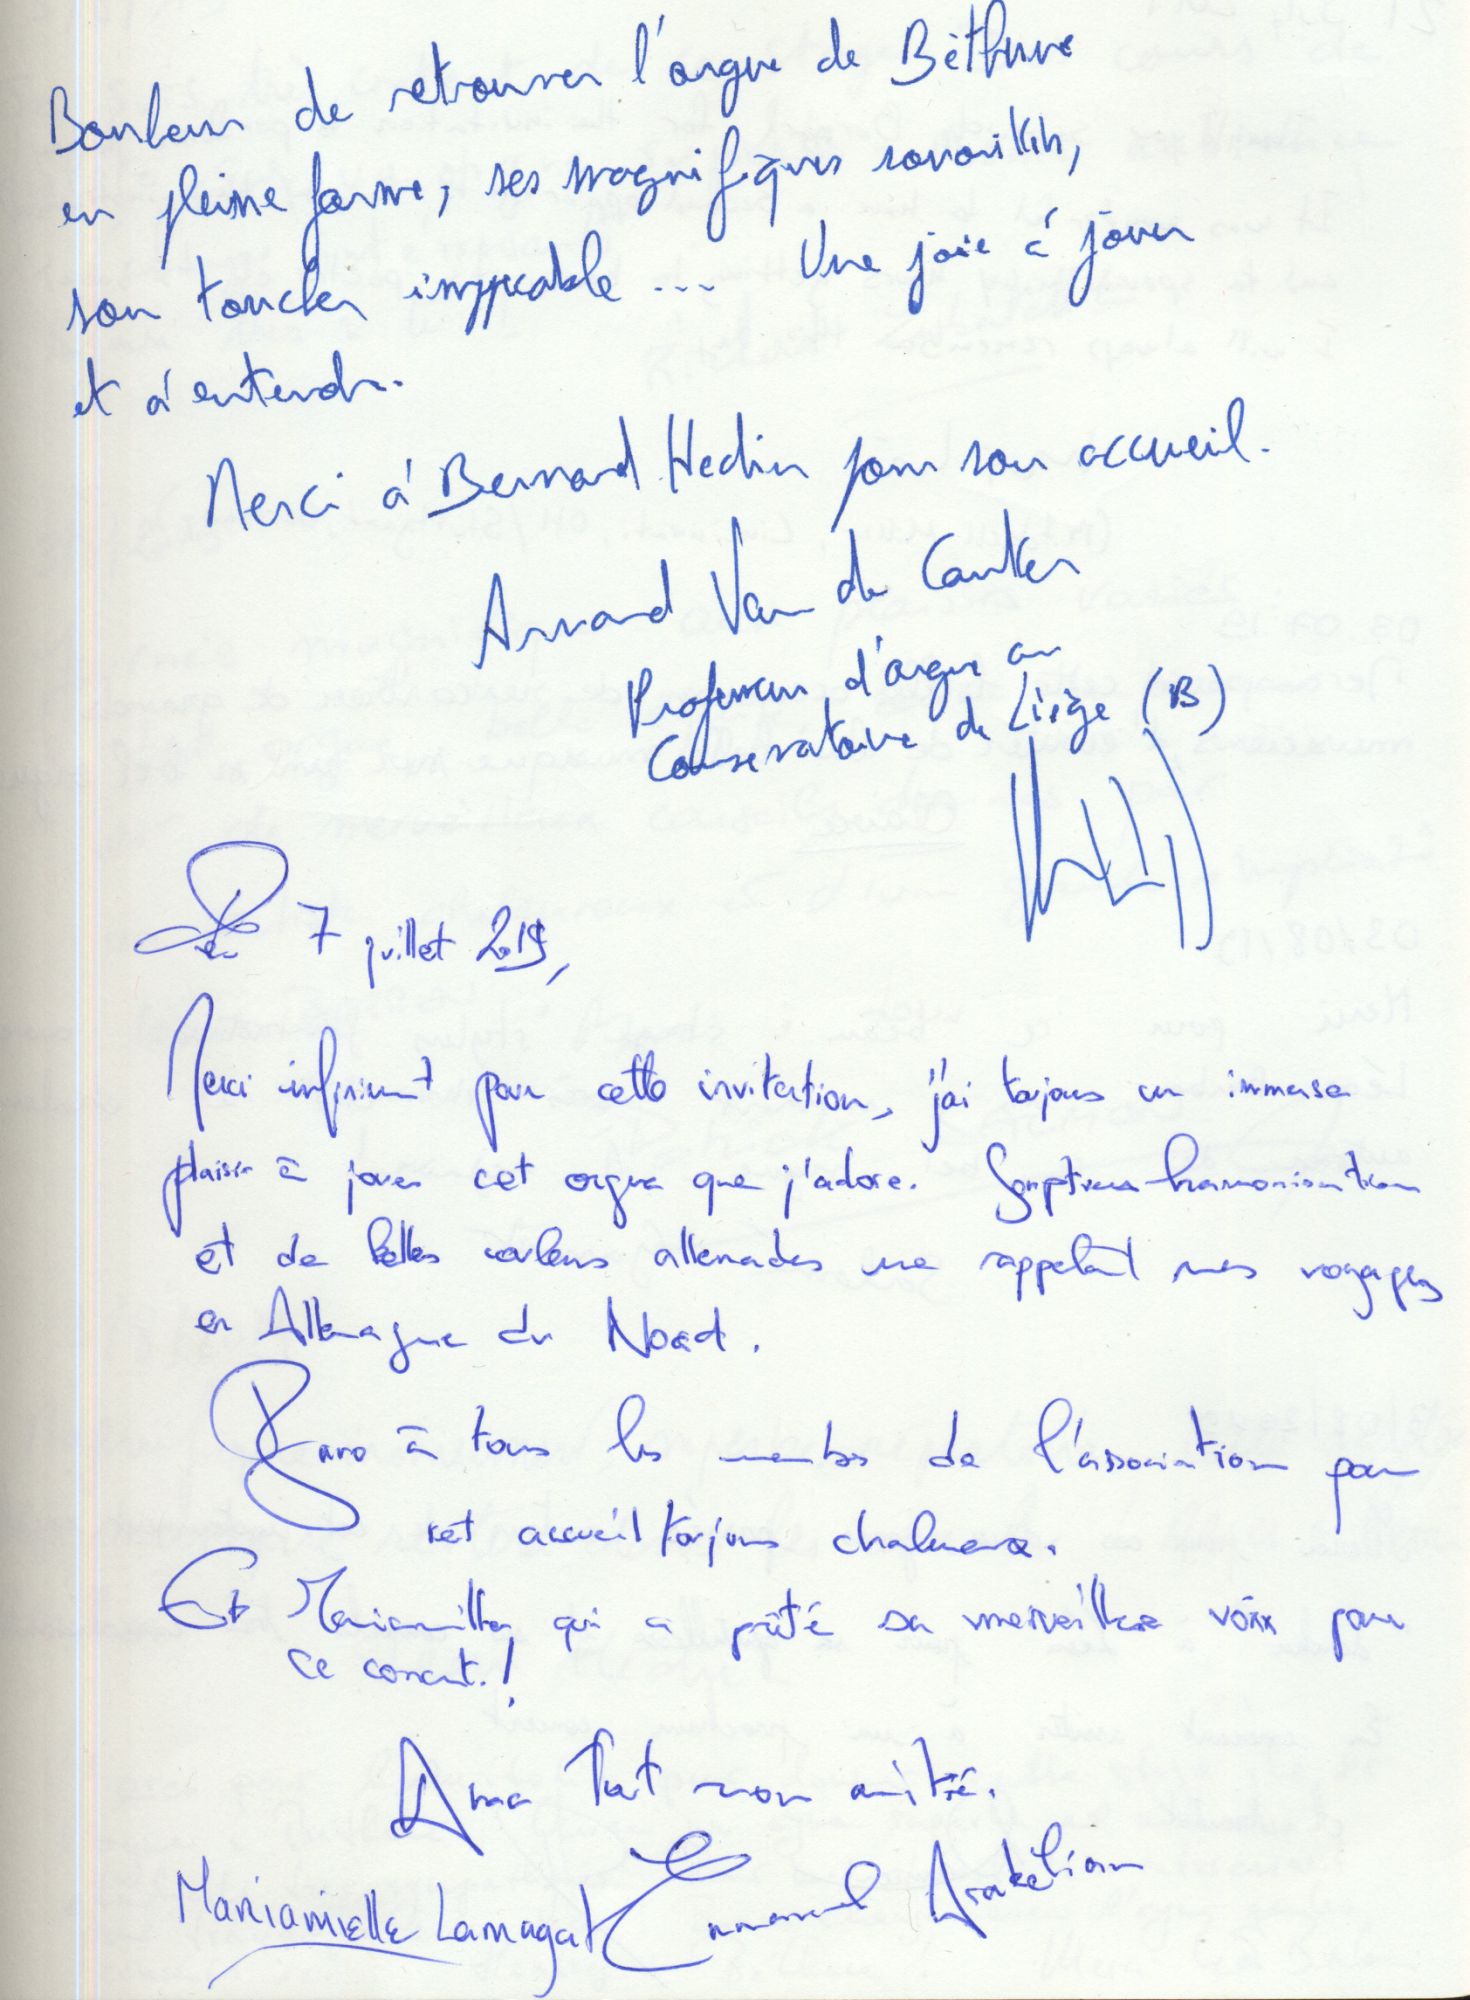 Bonheur de retrouver l'orgue de Béthune
en pleine forme, ses magnifiques sonorités,
son toucher impeccable ... Une joie à jouer
et à entendre.
Merci à Bernard Hedin pour son accueil.
Arnaud Van de Cauter
Professeur d'orgue au
Conservatoire de Liège (B)
Le 7 juillet 2019,
Merci infiniment pour cette invitation, j'ai toujours un immense
plaisir à jouer cet orgue que j'adore. Somptueuse harmonisation
et de belles couleurs allemandes me rappelant mes voyages
en Allemagne du Nord.
Bravo à tous les membres de l'association pour
cet accueil toujours chaleureux.
Et Mariamielle, qui a prêté sa merveilleuse voix pour
ce concert.!
Avec toute mon amitié.
Mariamielle Lamagat Emmanuel Arakélian